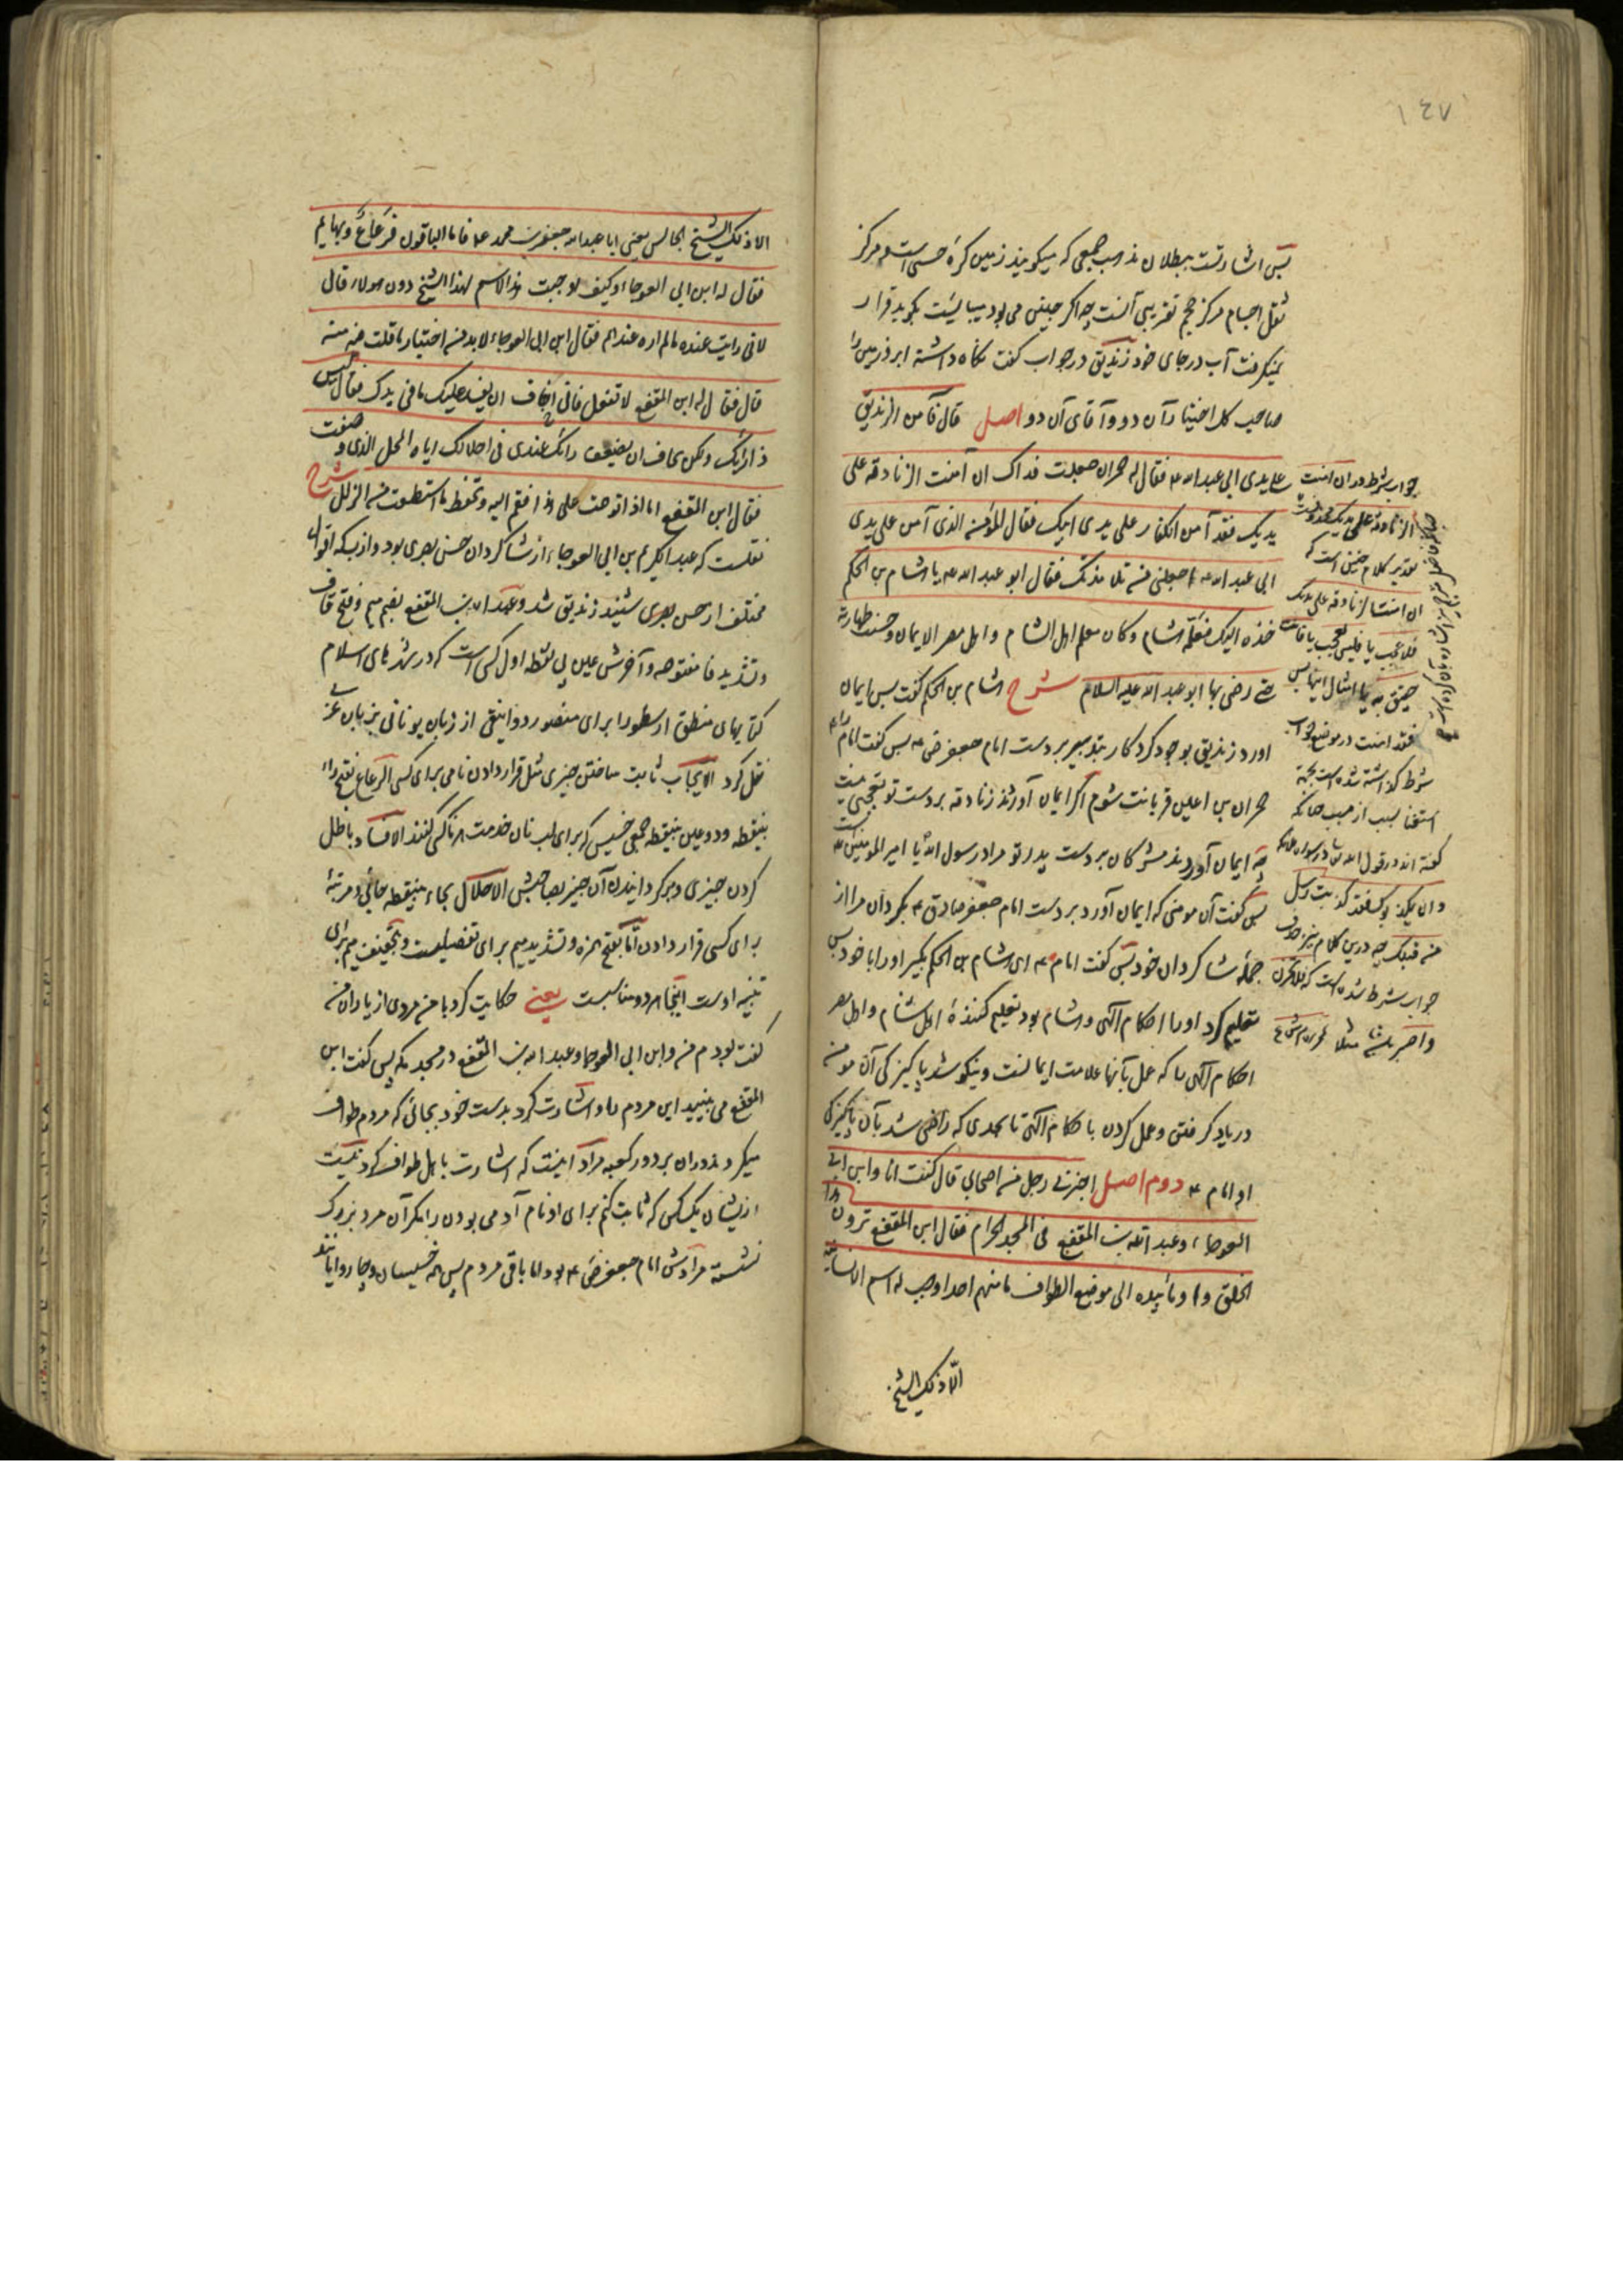 ١٤٧
پس اشارتست ببطلان مذهب جمعی که میکویند زمین کرهٔ حسی است و مرکز
ثقل اجسام مرکز حجم تقریبی آنست چه اکر چنین می بود میبایست بکوید قرار
نمیکرفت آب در جای خود زندیق در جواب کفت نکاه داشته ابر و زمین را
صاحب کل اختیار آن دو و آقای آن دو اصل قال فآمن الزندیق
علی یدی ابی عبد الله ع فقال له حمران جعلت فداک ان آمنت الزنادقة علی
یدیک فقد آمن الکفار علی یدی ابیک فقال المؤمن الذی آمن علی یدی
ابی عبد الله ع اجعلنی من تلامذتک فقال ابو عبد الله ع یا هشام بن الحکم
خذه الیک فعلّمه هشام و کان معلم اهل الشام و اهل مصر الایمان و حسنت طهارته
حتی رضی بها ابو عبد الله علیه السلام شرح هشام بن الحکم کفت پس ایمان
اورد زندیق بوجود کردکار بتدبیر بر دست امام جعفر ص ع پس کفت امام را
حمران بن اعین قربانت شوم اکر ایمان آورند زنادقه بر دست تو تعجبی نیست
چه ایمان آوردند مشرکان بر دست پدر تو مراد رسول الله یا امیر المومنین است
پس کفت آن مومنی که ایمان آورد بر دست امام جعفر صادق ع بکردان مرا از
جملهٔ شاکردان خود پس کفت امام ع ای هشام بن الحکم بکیر او را با خود پس
تعلیم کرد او را احکام آلهی و هشام بود تعلیم کنندهٔ اهل شام و اهل مصر
احکام آلهی را که عمل بآنها علامت ایمانست و نیکو شد پاکیزکی آن مومن
در یاد کرفتن و عمل کردن باحکام آلهی تا بحدی که راضی شد بآن پاکیزکی
او امام ع دوم اصل اخبرنی رجل من اصحابی قال کنت انا و ابن ابی
العوجاء و عبد الله بن المقفع فی المسجد الحرام فقال ابن المقفع ترون هذا
الخلق و اومأ بیده الی موضع الطواف ما منهم احد اوجب له اسم الانسانیة
الّا ذلک الشیخ
جواب شرط در ان آمنت
الزنادقة علی یدیک محذوفست
تقدیر کلام چنین است که
ان امنت الزنادقة علی یدیک
فلا عجب یا فلیس بعجب یا فانت
حقیق به یا امثال اینها پس
فقد امنت در موضع جواب
شرط کذاشته شده است بجهة
استغنا بسبب از مسبب چنانکه
کفته اند در قول الله تعالی
و ان یکذبوک فقد کذبت رسل
من قبلک چه درین کلام نیز
جواب شرط شده است که فلا تحزن
و اصبر باشد مثلا
الا ذلک الشیخ الجالس یعنی ابا عبد الله جعفر بن محمد ع فاما الباقون فرعاع و بهایم
فقال له ابن ابی العوجاء و کیف اوجبت هذا الاسم لهذا الشیخ دون هولاء قال
لانی رایت عنده ما لم اره عندهم فقال ابن ابی العوجاء لا بد من اختبار ما قلت فیه منه
قال فقال له ابن المقفع لا تفعل فانی اخاف ان یفسد علیک ما فی یدک فقال لیس
ذا رایک و لکن تخاف ان یضعف رایک عندی فی احلالک ایاه المحل الذی وصفت
فقال ابن المقفع اما اذا توهمت علی هذا فقم الیه و تحفظ ما استطعت من الزلل شرح
نقلست که عبد الکریم بن ابی العوجاء از شاکردان حسن بصری بود و از بسکه اقوال
مختلف از حسن بصری شنید زندیق شد و عبد الله بن المقفع بضم میم و فتح قاف
و تشدید فا مفتوحه و آخرش عین بی نقطه اول کسی است که در شهرهای اسلام
کتابهای منطق ارسطو را برای منصور دوانیقی از زبان یونانی بزبان عربی
نقل کرد الایجاب ثابت ساختن چیزی مثل قرار دادن نامی برای کسی الرعاع بفتح راء
بینقطه و دو عین بینقطه جمعی خسیس که برای لب نان خدمت هر ناکس کنند الافساد باطل
کردن چیزی و برکردانیدن آن چیز بصاحبش الاحلال بحاء بینقطه جائی و مرتبهٔ
برای کسی قرار دادن اما بفتح همزه و تشدید میم برای تفصیلست و بتخفیف میم برای
تنبیه اوست اینجا هر دو مناسبست یعنی حکایت کرد با من مردی از یاران من
کفت بودم من و ابن ابی العوجا و عبد الله بن المقفع در مسجد مکه پس کفت ابن
المقفع می بینید این مردم را و اشارت کرد بدست خود بجائی که مردم طواف
میکردند دوران بر دور کعبه مراد اینست که اشارت باهل طواف کرد نیست
ازیشان یک کس که ثابت کنم برای او نام آدمی بودن را مکر آن مرد بزرک
نشسته مرادش امام جعفر ص ع بود اما باقی مردم پس همه خسیسان و چاروایانند